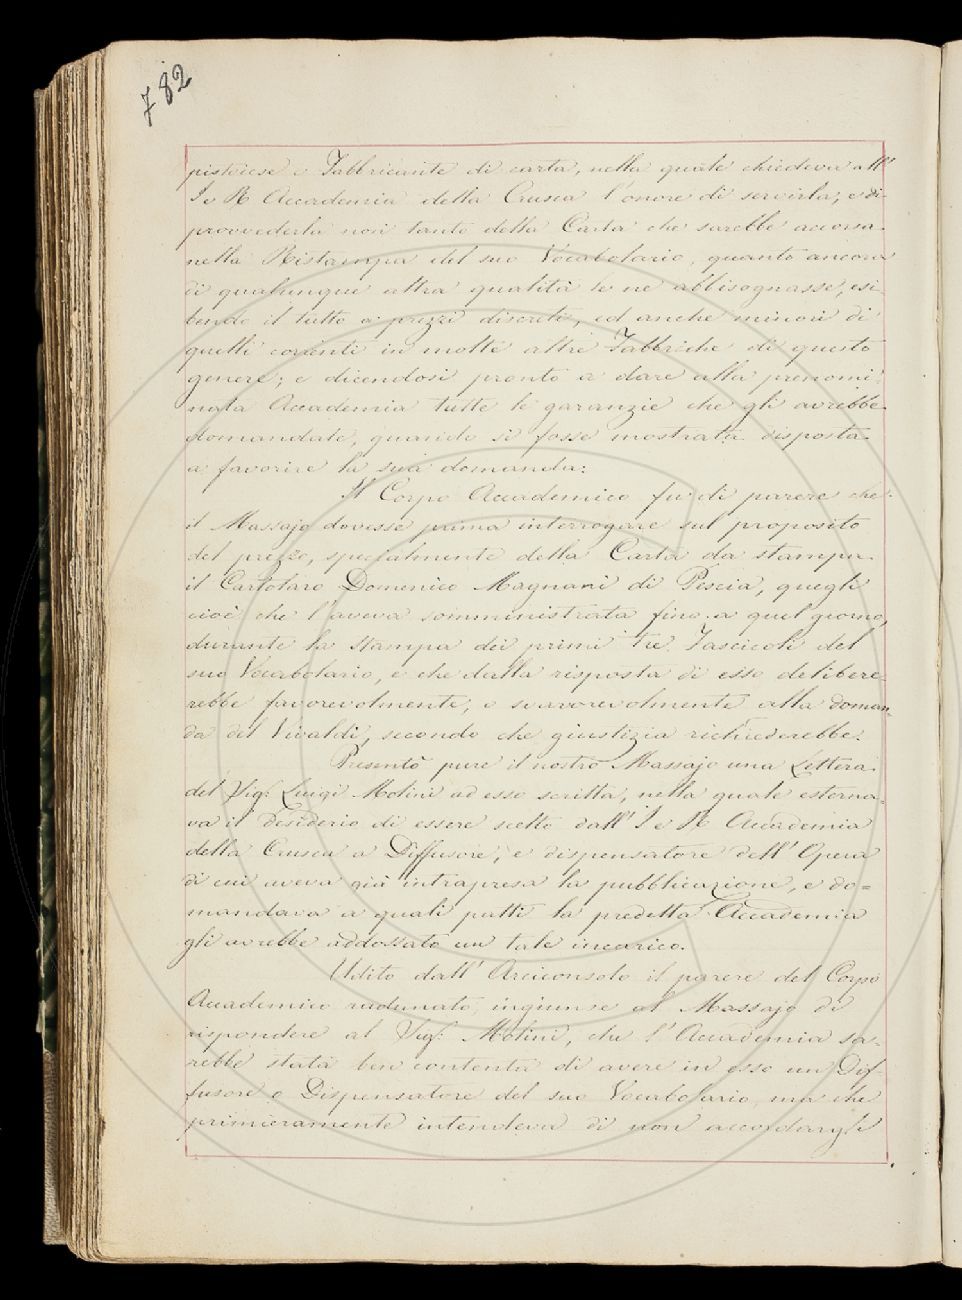 782
pistoiese e Fabbricante di carta, nella quale chiedeva all'
I e R Accademia della Crusca l'onore di servirla, e di
provvederla non tanto della Carta che sarebbe accorsa
nella Ristampa del suo Vocabolario, quanto ancora
di qualunque altra qualità le ne abbisognasse, esi=
bendo il tutto a prezzi discreti, ed anche minori di
quelli correnti in molte altre Fabbriche di questo
genere; e dicendosi pronto a dare alla prenomi=
nata Accademia tutte le garanzie che gli avrebbe
domandate, quando si fosse mostrata disposta
a favorire la sua domanda:
Il Corpo Accademico fu di parere che
il Massajo dovesse prima interrogare sul proposito
del prezzo, specialmente della Carta da stampa
il Cartolaro Domenico Magnani di Pescia, quegli
cioè che l'aveva somministrata fino a quel giorno,
durante la stampa dei primi tre Fascicoli del
suo Vocabolario, e che dalla risposta di esso delibere=
rebbe favorevolmente, o sfavorevolmente alla doman=
da del Vivaldi, secondo che giustizia richiederebbe.
Presentò pure il nostro Massajo una Lettera
del Sig: Luigi Molini ad esso scritta, nella quale esterna=
va il desiderio di essere scelto dall'I e R Accademia
della Crusca a Diffusore, e dispensatore dell'Opera
di cui aveva già intrapresa la pubblicazione, e do=
mandava a quali patti la predetta Accademia
gli avrebbe addossato un tale incarico.
Udito dall'Arciconsolo il parere del Corpo
Accademico radunato, ingiunse al Massajo di
rispondere al Sig: Molini, che l'Accademia sa=
rebbe stata ben contenta di avere in esso un Dif=
fusore o Dispensatore del suo Vocabolario, ma che
primieramente intendeva di non accordargli